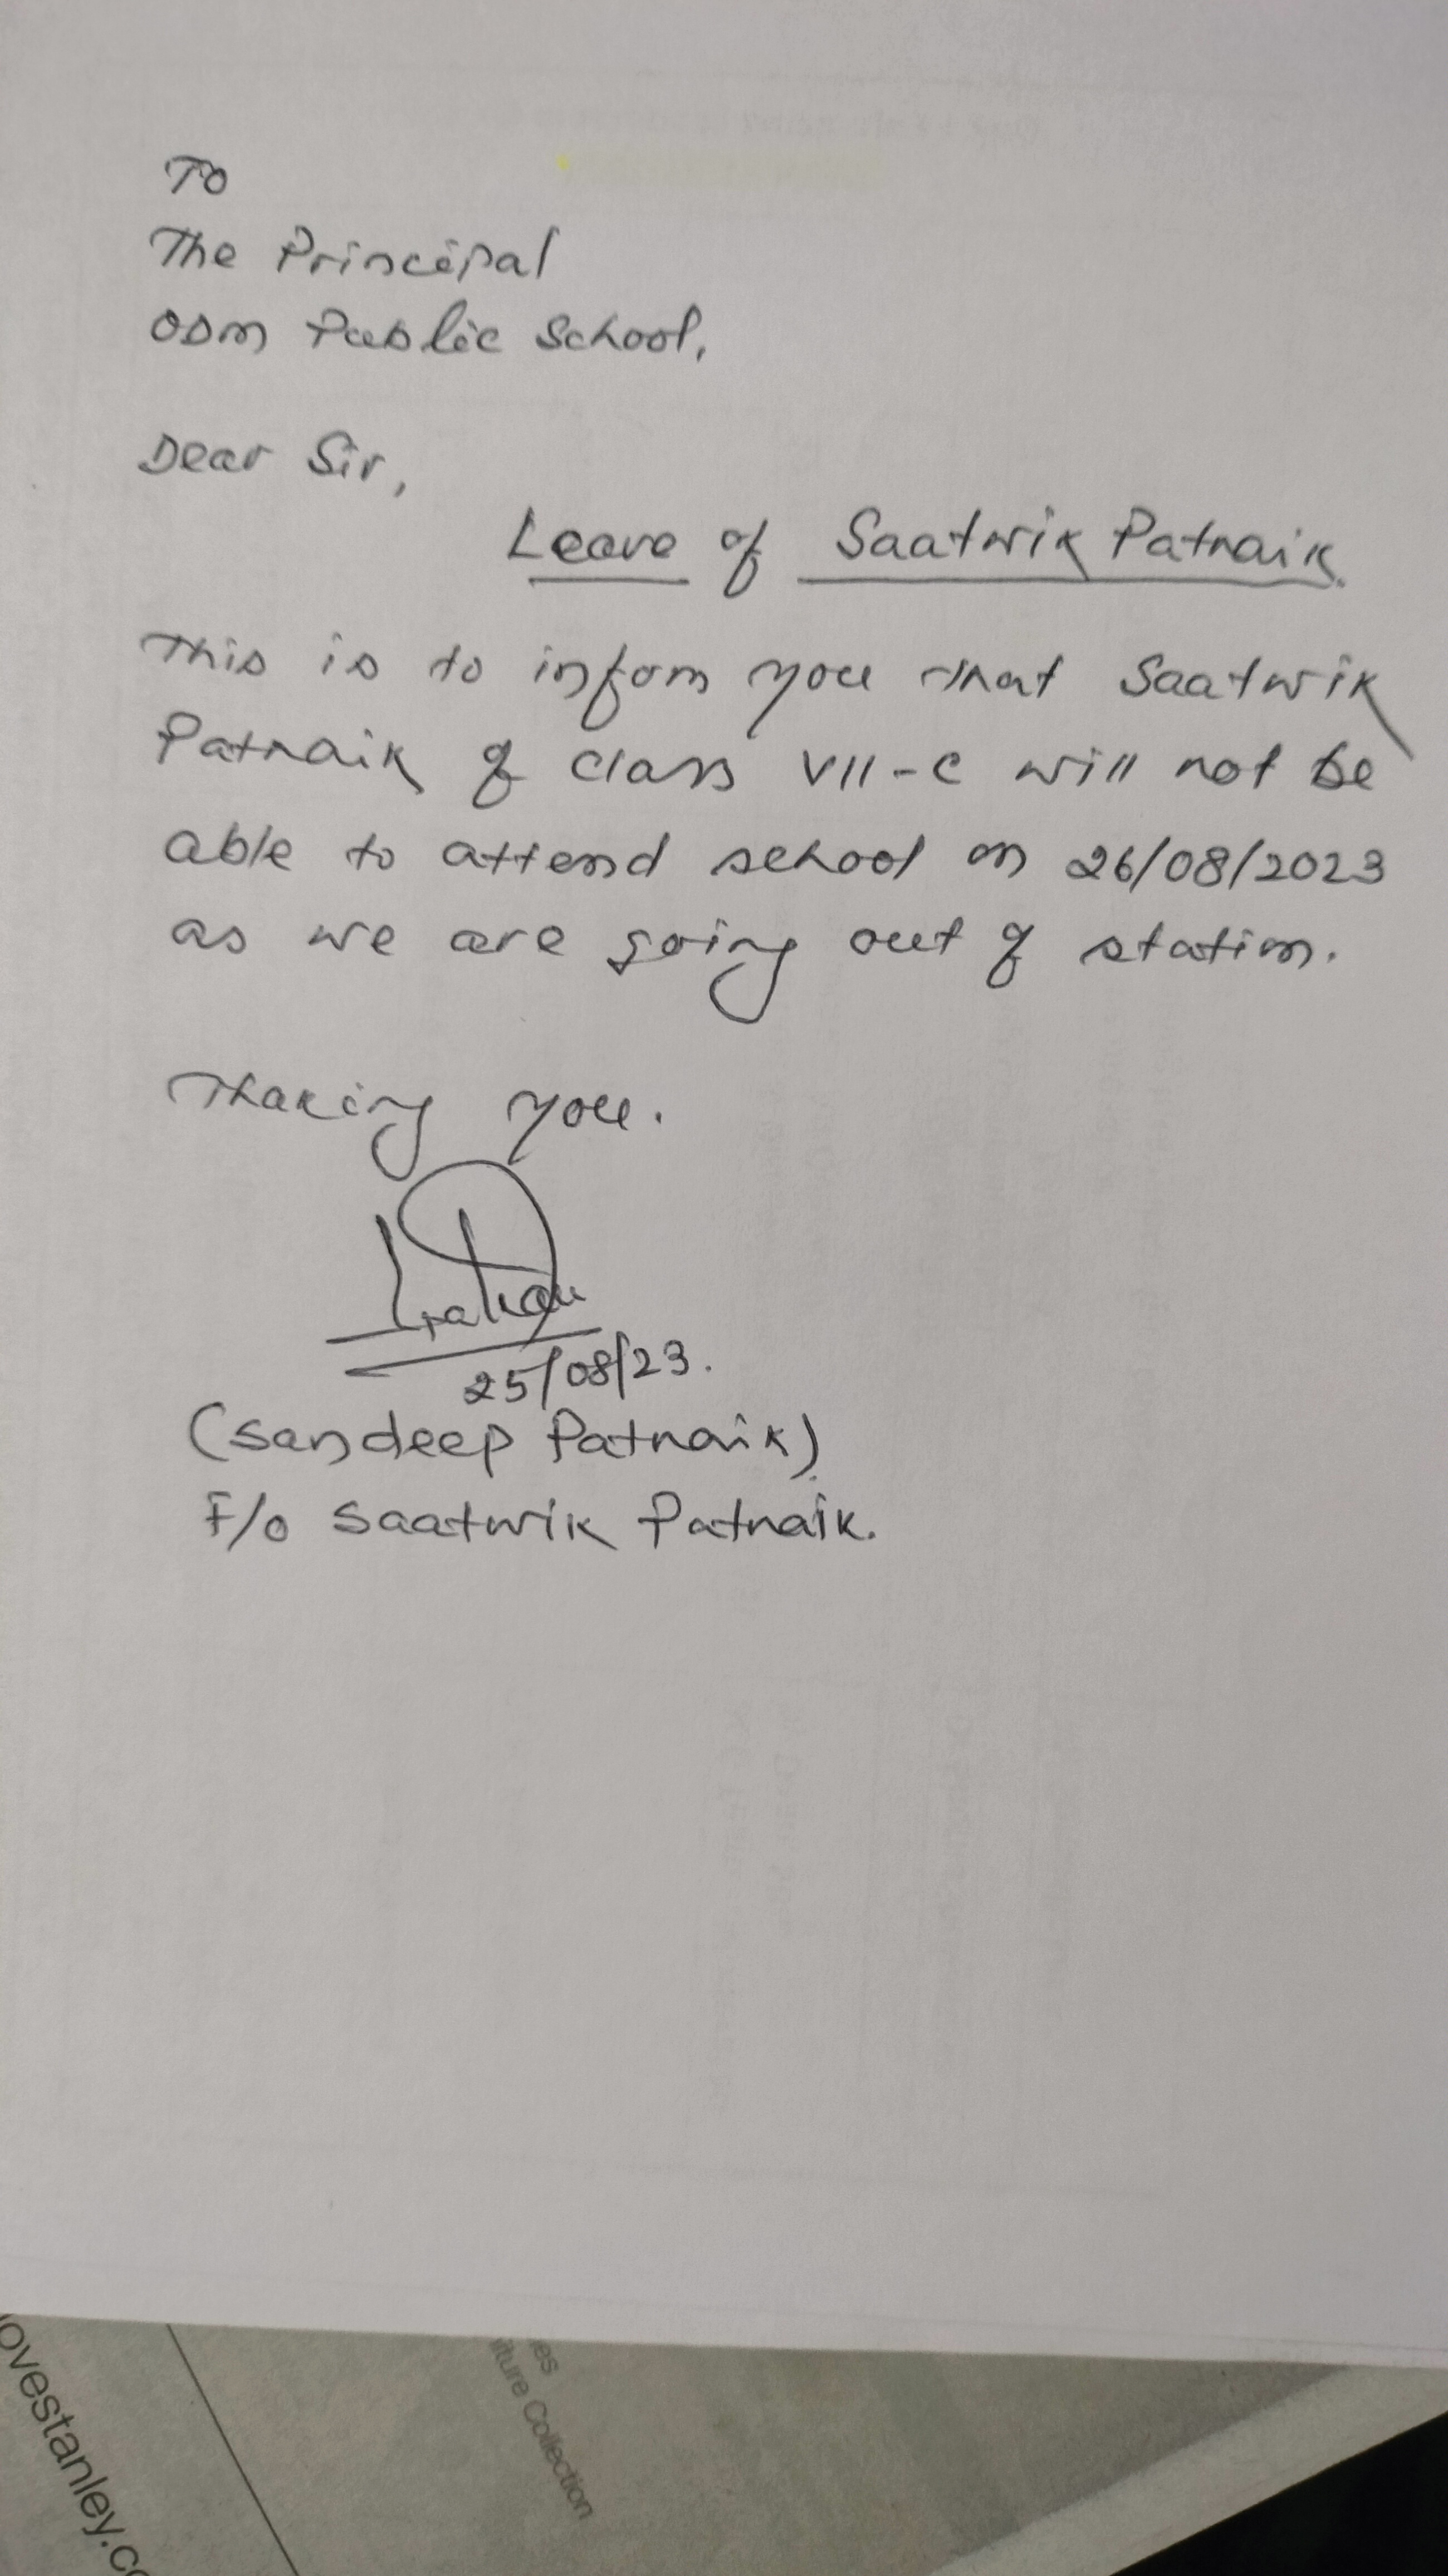 To
The Principal
ODM Public School,
Dear Sir,
Leave of Saatwik Patnaik.
This is to infom you that Saatwik
Patnaik of class VII-C will not be
able to attend school on 26/08/2023
as we are going out of station.
Thaking you.
25/08/23.
(Sandeep Patnaik)
F/o Saatwik Patnaik.
ovestanley.co
es
iture Collection